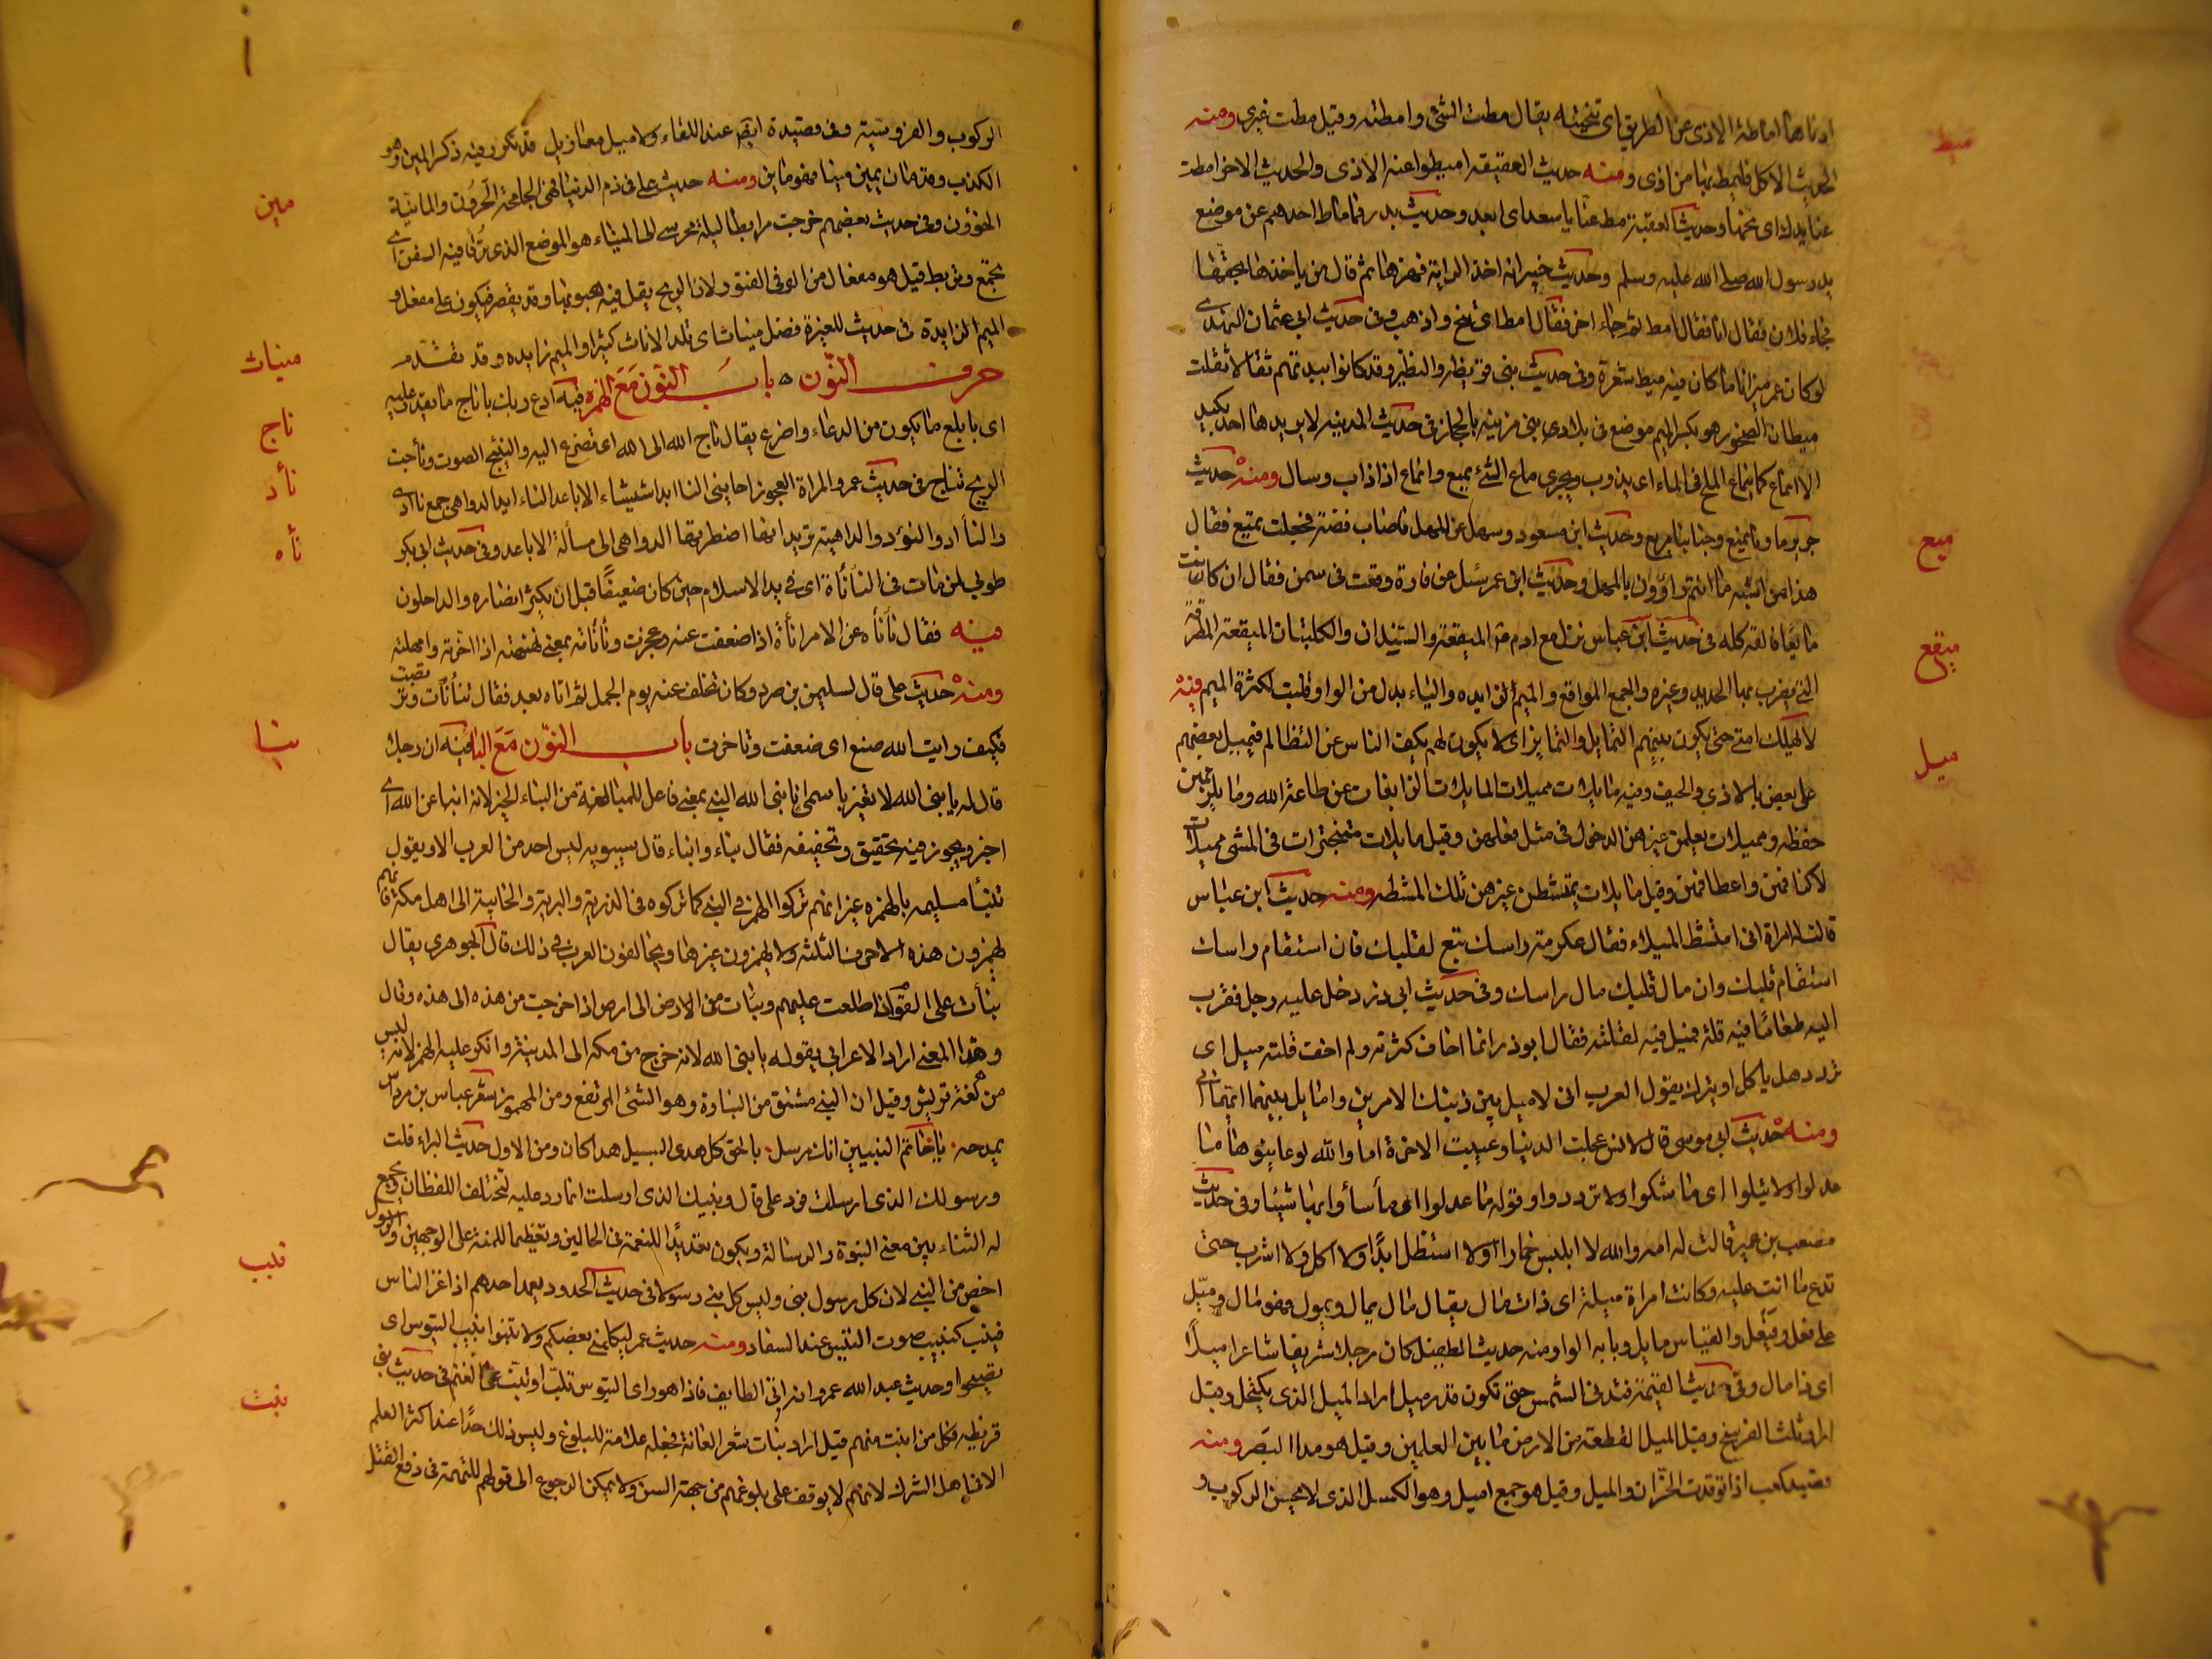 ادناها اماطة الاذى عن الطريق اى تنحيته يقال مطت الشئ وامطته وقيل مطت غيرى ومنه
ميط
الحديث الاكل فليمط ما بها من اذى ومنه حديث العقيقه اميطوا عنه الاذى والحديث الاخر امطت
عنا يدك اى نحها وحديث العقبة مط عنا يا سعد اى ابعد وحديث بدر فما ماط احدهم عن موضع
يد رسول الله صلى الله عليه وسلم وحديث خيبر انه اخذ الراية فهزها ثم قال من ياخذها بحقها
فجاء فلان فقال انا فقال امط ثم جاء اخر فقال امط اى تنح واذهب وفى حديث ابى عثمان النهدى
لو كان عمر ميزانا ما كان فيه ميط شعرة وفى حديث بنى قريظة والنظير وقد كانوا ببلدتهم ثقالا كما ثقلت
ميطان الصخور هو بكسر الميم موضع فى بلاد بنى مزينه بالحجاز فى حديث المدينه لا يريدها احد بكيد
الا انماع كما ينماع الملح فى الماء اى يذوب ويجرى ماع الشئ يميع وانماع اذا ذاب وسال ومنه حديث
جرير ماؤنا يميع وجنابنا مريع وحديث ابن مسعود وسئل عن المهل فاذاب فضة فجعلت تميع فقال
ميع
هذا من اشبه ما انتم راؤون بالمهل وحديث ابن عمر سئل عن فارة وقعت فى سمن فقال ان كان
مائعا فالقه كله فى حديث ابن عباس نزل مع ادم الميقعة والسندان والكلبتان الميقعة المطرقة
ميقع
التى يضرب بها الحديد وغيره والجمع المواقع والميم زايده والياء بدل من الواو قلبت لكسرة الميم فيه
لا تهلك امتى حتى يكون بينهم التمايل والتمايز اى لا يكون لهم يكف الناس عن التظالم فيميل بعضهم
ميل
على بعض بالاذى والحيف وفيه مايلات مميلات المايلات الزايغات عن طاعة الله وما يلزمهن
حفظه ومميلات يعلمن غيرهن الدخول فى مثل فعلهن وقيل مايلات متبخترات فى المشى مميلات
لاكتافهن واعطافهن وقيل مايلات يمتشطن غيرهن تلك المشطه ومنه حديث ابن عباس
قالت له امراة انى امتشط الميلاء فقال عكرمة راسك تبع لقلبك فان استقام راسك
استقام قلبك وان مال قلبك مال راسك وفى حديث ابى ذر دخل عليه رجل فقرب
اليه طعاما فيه قلة فميل فيه لقلته فقال ابوذر انما اخاف كثرته ولم اخف قلته ميل اى
تردد هل ياكل او يترك يقول العرب انى لاميل بين ذينك الامرين وامايل بينهما ايهما اتى
ومنه حديث ابى موسى قال لانس عجلت الدنيا وغيبت الاخرة اما والله لو عاينوها ما
عدلوا ولا ميلوا اى ما شكوا ولا ترددوا وقوله ما عدلوا اى ما ساووا بها شيئا وفى حديث
مصعب بن عمير قالت له امه والله لا البس خمارا ولا استظل ابدا ولا اكل ولا اشرب حتى
تدع ما انت عليه وكانت امراة ميلة اى ذات مال يقال مال يمال ويمول فهو مال وميل
على فعل وفيعل والقياس مايل وبابه الواو ومنه حديث الطفيل كان رجلا شريفا شاعرا ميلا
اى ذا مال وفى حديث القيمة فتدنى الشمس حتى تكون قدر ميل اراد الميل الذى يكتحل وقيل
اراد ثلث الفرسخ وقيل الميل القطعة من الارض ما بين العلمين وقيل هو مد البصر ومنه
قصيد كعب اذا توقدت الحزان والميل وقيل هو جمع اميل وهو الكسل الذى لا يحسن الركوب و
الركوب والفروسية وفى قصيدة ايضا عند اللقاء ولا ميل معازيل قد تكرر فيه ذكر المين وهو
الكذب وقد مان يمين مينا فهو ماين ومنه حديث على فى ذم الدنيا فهى الجامحة الحرون والماينة
مين
الخؤون وفى حديث بعضهم خرجت مرابطا ليلة محرسى الى الميناء هو الموضع الذى ترفا فيه السفن اى
تجتمع وتربط قيل هو مفعال من الونى الفتور لان الريح يقل فيه هبوبها وقد يقصر فيكون على مفعل و
الميم زايدة فى حديث المغيرة فضل ميناث اى تلد الاناث كثيرا والميم زايده وقد تقدم
ميناث
حرف النون باب النون مع الهمزه فيه ادع ربك باناج ما تقدر عليه
ناج
اى بابلغ ما يكون من الدعاء واضرع يقال ناج الله الى الله اى تضرع اليه والنئيج الصوت ونأجت
الريح تناج فى حديث عمر والمراة العجوز اجاءتنى الناآد الى استيشاء الاباعد الناآد الدواهى جمع ناادى
نأد
والنأد والنؤد والداهية تريد انها اضطرتها الدواهى الى مسألة الاباعد وفى حديث ابى بكر
نأه
طوبى لمن مات فى النأنأة اى فى بدا الاسلام حين كان ضعيفا قبل ان يكثر انصاره والداخلون
فيه فقال نأنأه عن الامر نأنأة اذا ضعفت عنه وعجزت ونأنأته بمعنى نهنهته اذا اخرته وامهلته
ومنه حديث على قال لسليمن بن صرد وكان تخلف عنه يوم الجمل ثم اتاه بعد فقال تنأنأت وتربصت
فكيف رايت الله صنع اى ضعفت وتاخرت باب النون مع البا فيه ان رجلا
نبا
قال له يا نبئ الله لا تنبز باسمى انا نبى الله النبى بمعنى فاعل للمبالغة من النباء الخبر لانه انباء عن الله اى
اخبر ويجوز فيه تحقيق وتخفيفه فقال نباء وانباء قال سيبويه ليس احد من العرب الا ويقول
تنبأ مسيلمه بالهمزه غير انهم تركوا الهمز فى النبى كما تركوه فى الذرية والبرية والخابية الى اهل مكة فانهم
يهمزون هذه الاحرف الثلثه ولا يهمزون غيرها ويخالفون العرب فى ذلك قال الجوهرى يقال
نبأت على القوم اذا طلعت عليهم ونبات من الارض الى ارض اذا خرجت من هذه الى هذه وقال
وهذا المعنى اراد الاعرابى بقوله يا نبئ الله لانه خرج من مكه الى المدينة وانكر عليه الهمز لانه ليس
من لغة قريش وقيل ان النبى مشتق من النباوة وهو الشئ المرتفع ومن المهموز شعر عباس بن مرداس
يمدحه يا خاتم النبيين انك مرسل بالحق كل هدى السبيل هداكا ومن الاول حديث البراء قلت
ورسولك الذى ارسلت فرد على قال ونبيك الذى ارسلت انما رد عليه لتختلف اللفظان ويجمع
له الثناء بين معنى النبوة والرسالة ويكون تعديدا للنعمة فى الحالين وتعظيما للمنة على الوجهين والرسول
اخص من النبى لان كل رسول نبى وليس كل نبى رسولا فى حديث الحدود يعمد احدهم اذا غزا الناس
نبب
فينب كنبيب صوت التيس عند السفاد ومنه حديث عمر ليكلمنى بعضكم ولا تنبوا نبيب التيوس اى
تصيحوا وحديث عبد الله عمرو انه اتى الطايف فاذا هو راى التيوس تلب او تنب على الغنم فى حديث بنى
نبت
قريظه فكل من انبت منهم قتل اراد نبات شعر العانة فجعله علامة للبلوغ وليس ذلك حدا عند اكثر العلم
الا فى اهل الشرك لانهم لا يوقف على بلوغهم من جهة السن ولا يمكن الرجوع الى قولهم للتهمة فى دفع القتل